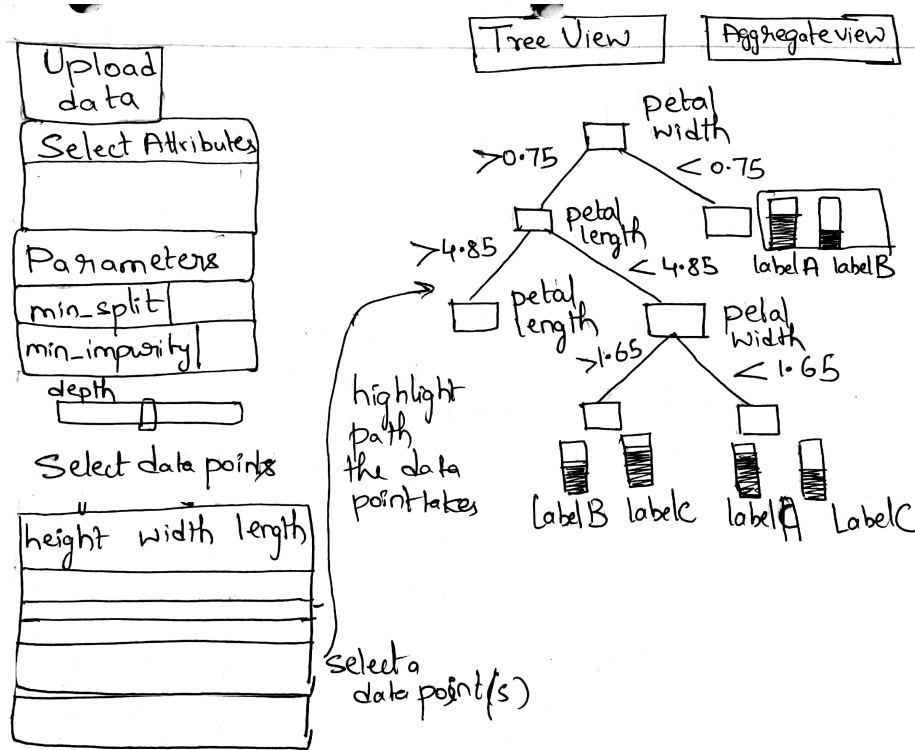 Upload
data
Select Attributes
Parameters
min_split
min_impurity
depth
Select data points
height width length
Select a
data point(s)
highlight
path
the data
point takes
Tree View
Aggregate view
petal
width
>0.75
<0.75
petal
length
label A label B
>4.85
<4.85
petal
length
petal
width
>1.65
<1.65
Label B label C
Label C